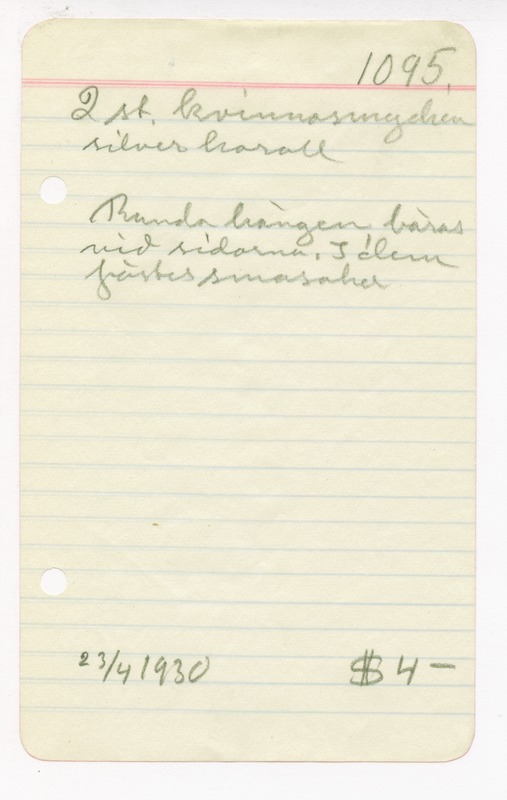 1095.
2 st. kvinnosmycken
silver korall
Runda hängen bäras
vid sidorna. I dem
fästes småsaker
23/4 1930 $4-